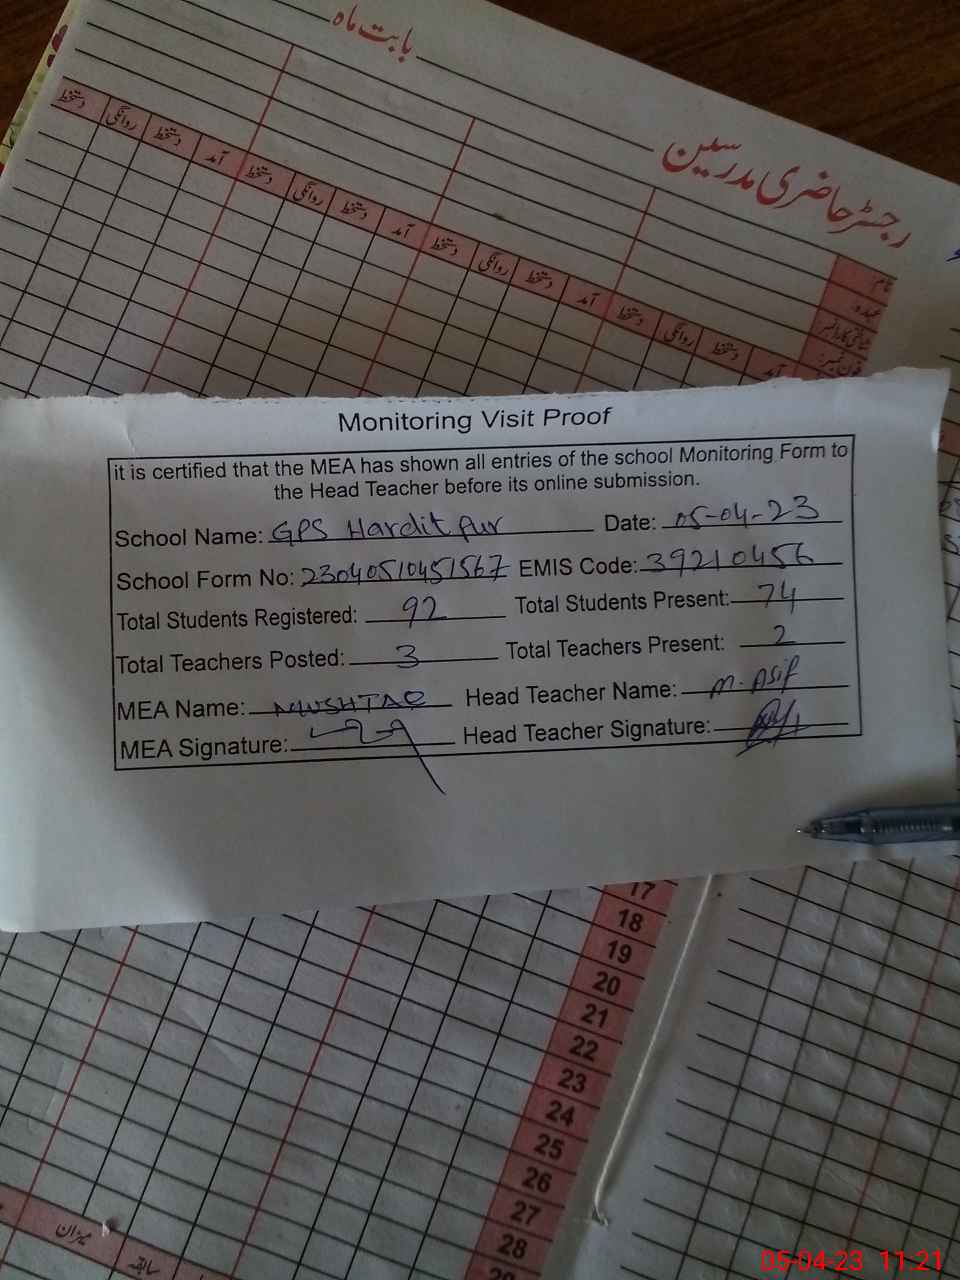 بابت ماہ
رجسٹر حاضری مدرسین
نام:
عہدہ:
دستخط روانگی دستخط آمد دستخط روانگی دستخط آمد دستخط روانگی دستخط آمد دستخط روانگی دستخط آمد
Monitoring Visit Proof
it is certified that the MEA has shown all entries of the school Monitoring Form to
the Head Teacher before its online submission.
School Name: GPS Harditpur Date: 05-04-23
School Form No: 23040510451567 EMIS Code: 39210456
Total Students Registered: 92 Total Students Present: 74
Total Teachers Posted: 3 Total Teachers Present: 2
MEA Name: MUSHTAQ Head Teacher Name: M. Asif
MEA Signature: Head Teacher Signature:
17
18
19
20
21
22
23
24
25
26
27
28
میزان
سابقہ
05-04-23 11:21